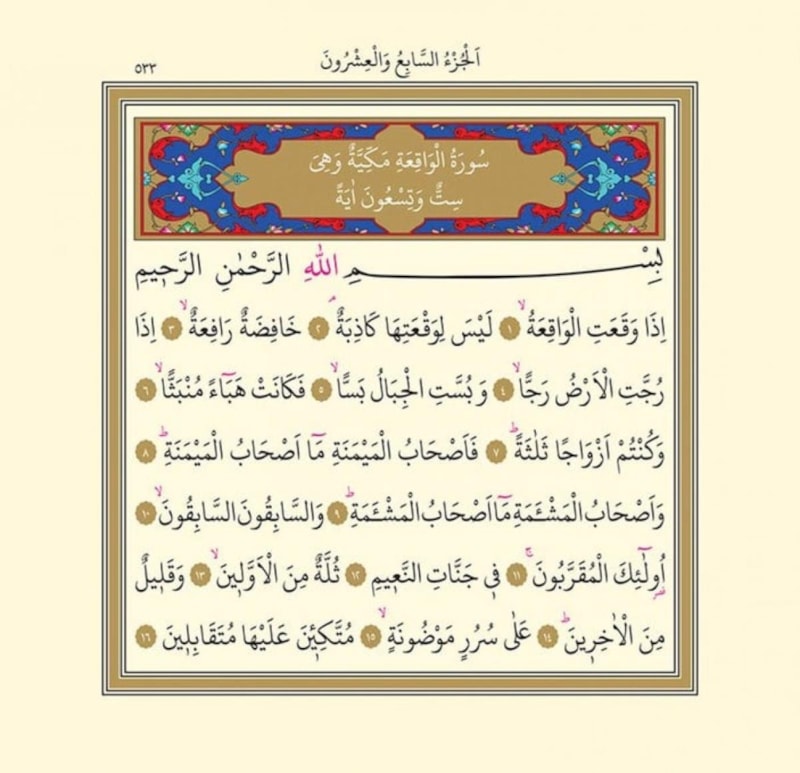 اَلْجُزْءُ السَّابِعُ وَالْعِشْرُونَ
٥٣٣
سُورَةُ الْوَاقِعَةِ مَكِّيَّةٌ وَهِىَ
سِتٌّ وَتِسْعُونَ اٰيَةً
بِسْمِ اللّٰهِ الرَّحْمٰنِ الرَّحِيمِ
اِذَا وَقَعَتِ الْوَاقِعَةُۙ ﴿١﴾ لَيْسَ لِوَقْعَتِهَا كَاذِبَةٌۢ ﴿٢﴾ خَافِضَةٌ رَافِعَةٌۙ ﴿٣﴾ اِذَا
رُجَّتِ الْاَرْضُ رَجًّاۙ ﴿٤﴾ وَبُسَّتِ الْجِبَالُ بَسًّاۙ ﴿٥﴾ فَكَانَتْ هَبَٓاءً مُنْبَثًّاۙ ﴿٦﴾
وَكُنْتُمْ اَزْوَاجًا ثَلٰثَةًۜ ﴿٧﴾ فَاَصْحَابُ الْمَيْمَنَةِ مَٓا اَصْحَابُ الْمَيْمَنَةِۜ ﴿٨﴾
وَاَصْحَابُ الْمَشْـَٔمَةِ مَٓا اَصْحَابُ الْمَشْـَٔمَةِۜ ﴿٩﴾ وَالسَّابِقُونَ السَّابِقُونَۙ ﴿١٠﴾
اُو۬لٰٓئِكَ الْمُقَرَّبُونَۚ ﴿١١﴾ فِى جَنَّاتِ النَّعِيمِ ﴿١٢﴾ ثُلَّةٌ مِنَ الْاَوَّلِينَۙ ﴿١٣﴾ وَقَلِيلٌ
مِنَ الْاٰخِرِينَۜ ﴿١٤﴾ عَلٰى سُرُرٍ مَوْضُونَةٍۙ ﴿١٥﴾ مُتَّكِـِٔينَ عَلَيْهَا مُتَقَابِلِينَ ﴿١٦﴾